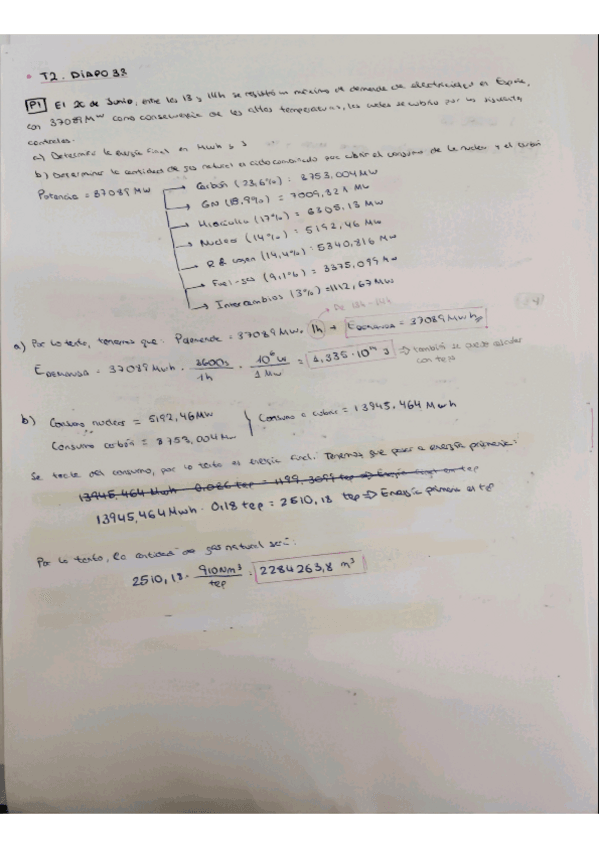 • T2. DIAPO 32
P1 El 20 de Junio, entre las 13 y 14h se registró un máximo de demanda de electricidad en España,
con 37089 MW como consecuencia de las altas temperaturas, las cuales se cubrió por las siguientes
centrales.
a) Determinar la energía final en MWh y J
b) Determinar la cantidad de gas natural en ciclo combinado para cubrir el consumo de la nuclear y el carbón
Potencia = 37089 MW
→ Carbón (23,6%) : 8753,004 MW
→ GN (18,9%) = 7009,821 MW
→ Hidráulica (17%) = 6305,13 MW
→ Nuclear (14%) : 5192,46 MW
→ R E (14,4%) : 5340,816 MW
→ Fuel-gas (9,1%) = 3375,099 MW
→ Intercambios (3%) = 1112,67 MW
De 13h-14h
a) Por lo tanto, tenemos que: Pdemanda = 37089 MW. 1h → EDEMANDA = 37089 MWh
EDEMANDA = 37089 MWh · 3600s / 1h · 10⁶ W / 1 MW = 1,335 · 10¹⁴ J ⇒ también se puede calcular
con tep
b) Consumo nuclear = 5192,46 MW } Consumo a cubrir = 13945,464 MWh
Consumo carbón = 8753,004 MW
Se trata del consumo, por lo tanto es energía final. Tenemos que pasar a energía primaria:
13945,464 MWh · 0,086 tep = 1199,3099 tep ⇒ Energía en tep
13945,464 MWh · 0,18 tep = 2510,18 tep ⇒ Energía primaria en tep
Por lo tanto, la cantidad de gas natural será:
2510,18 · 910 Nm³ / tep = 2284263,8 m³